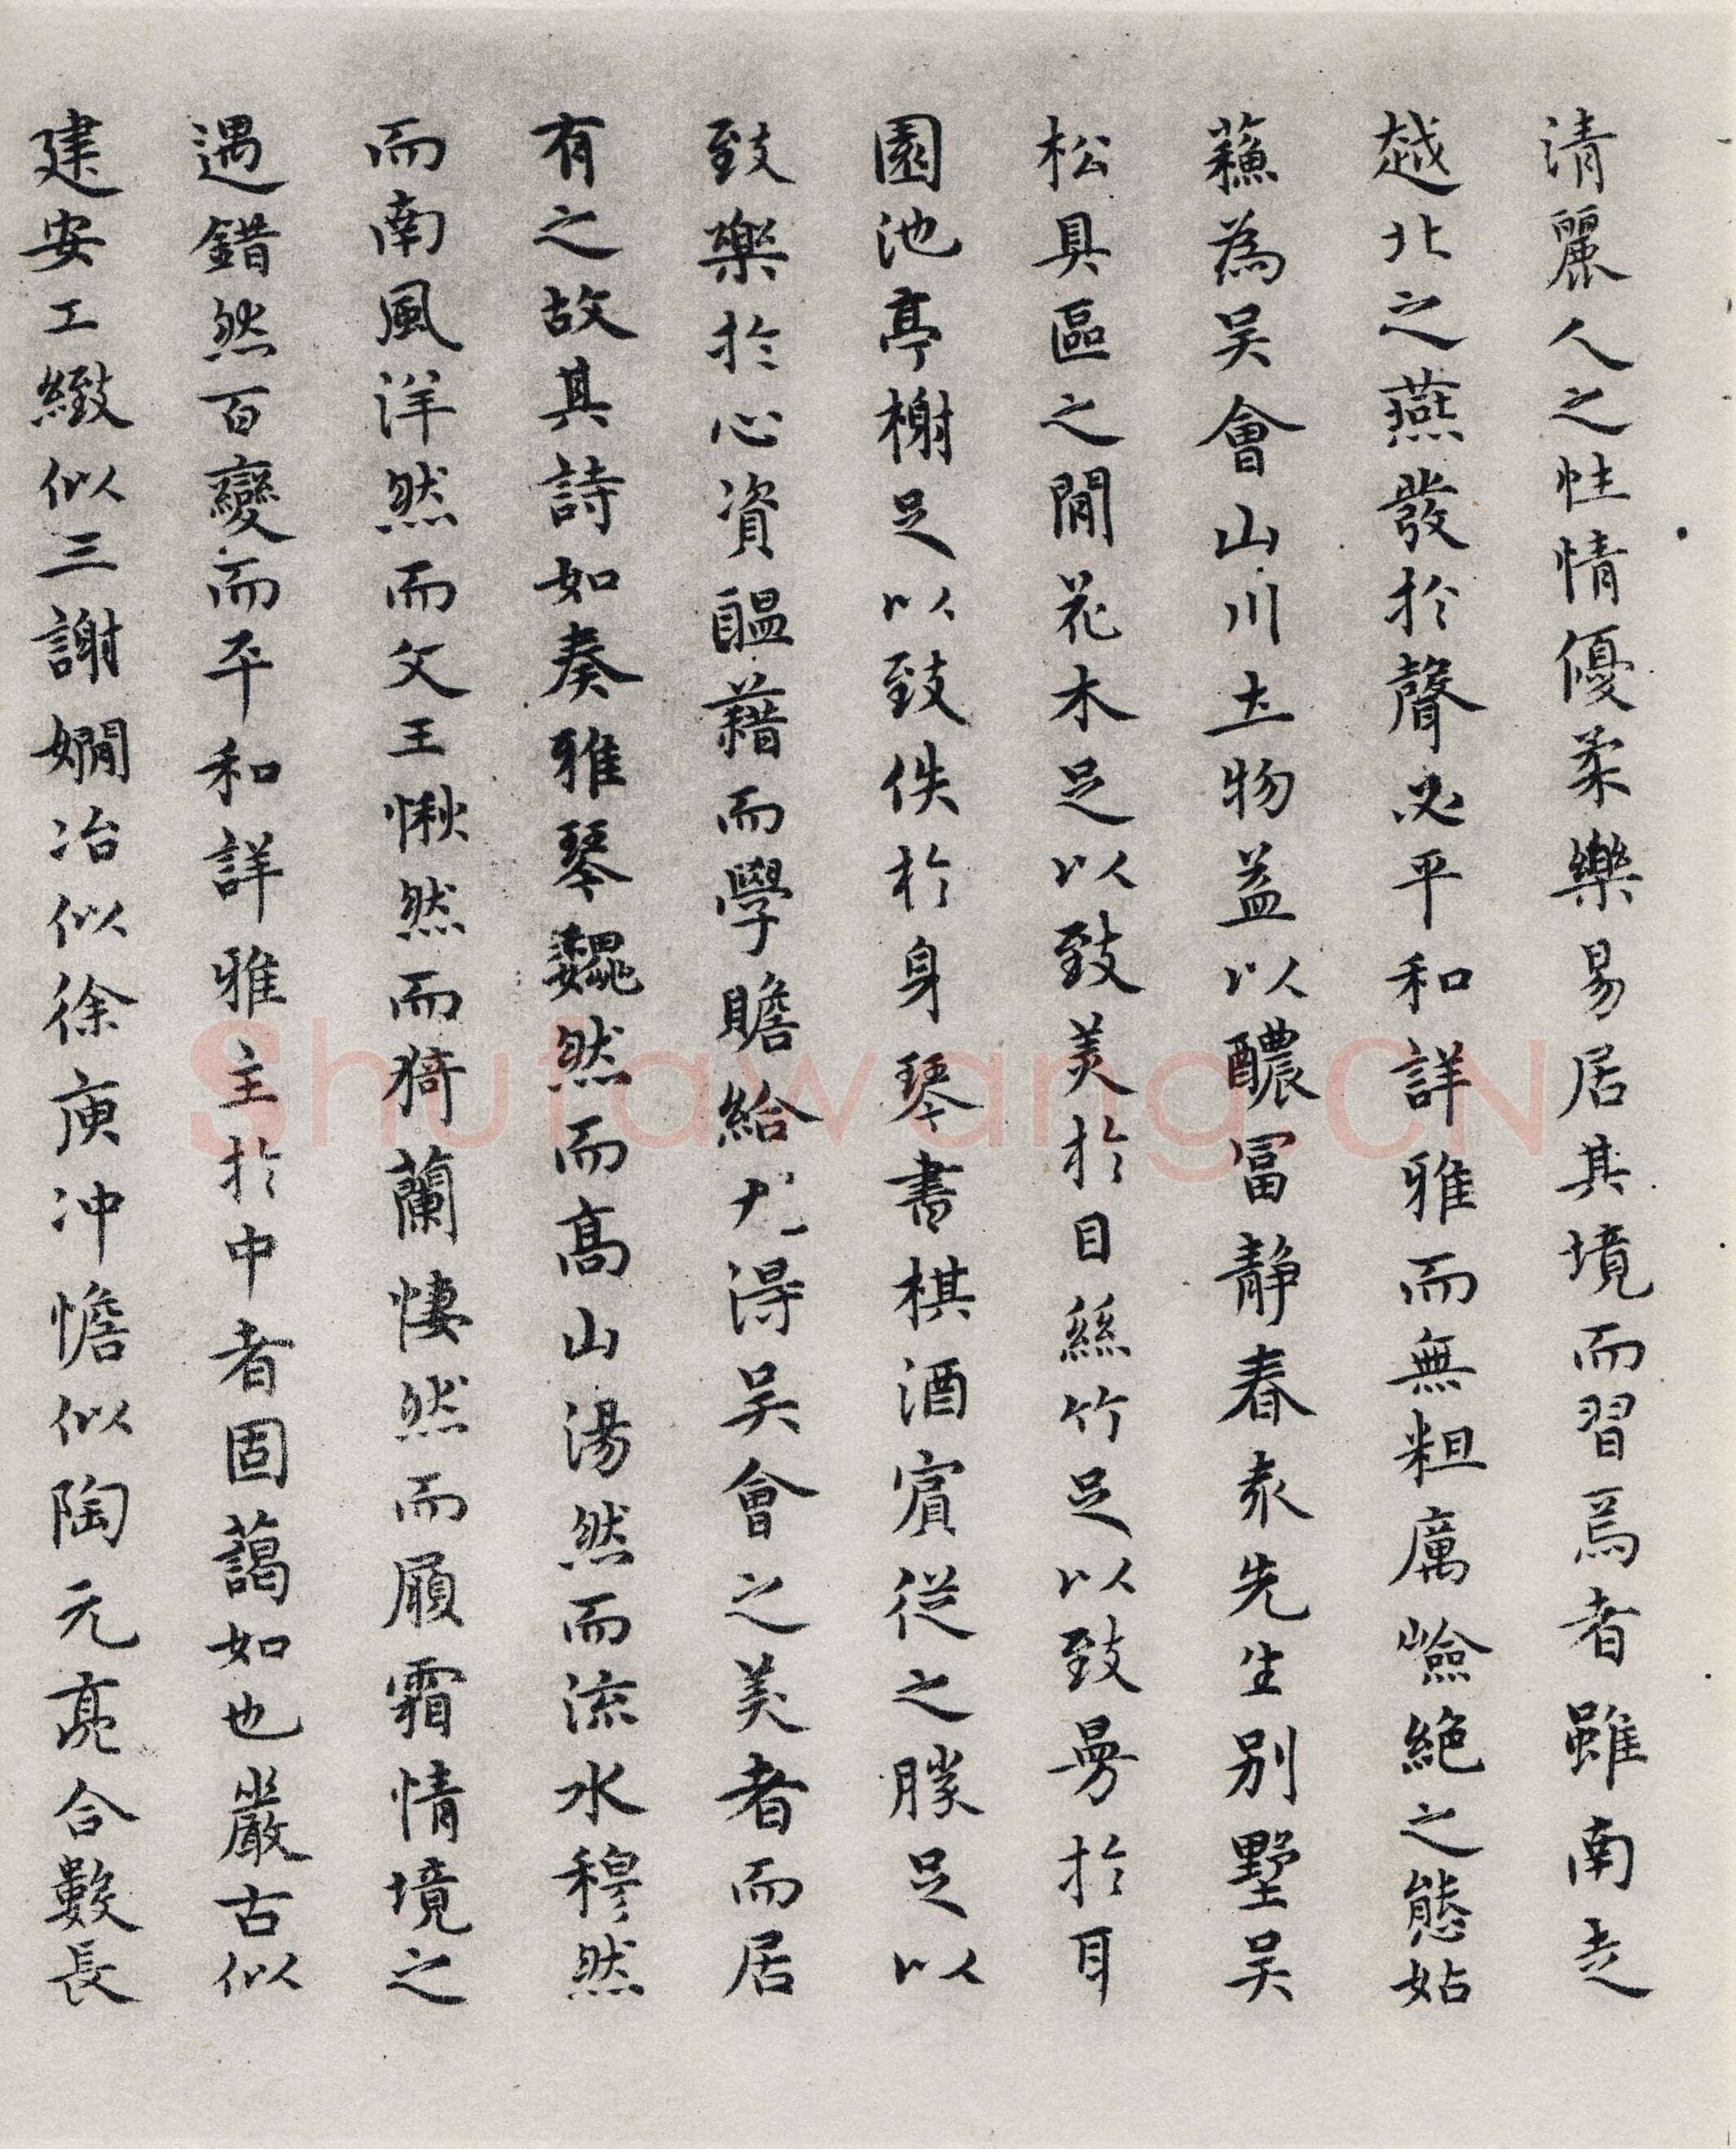 清麗人之性情優柔樂易居其境而習焉者雖南走
越北之燕發於聲必平和詳雅而無粗厲嶮絶之態姑
蘓為吴會山川土物益以醲冨静春袁先生别墅吴
松具區之間花木足以致美於目絲竹足以致曼於耳
園池亭榭足以致佚於身琴書棋酒賔從之勝足以
致樂於心資醖藉而學贍給尤得吴會之美者而居
有之故其詩如奏雅琴巍然而高山湯然而流水穆然
而南風洋然而文王愀然而猗蘭悽然而履霜情境之
遇錯然百變而平和詳雅主於中者固藹如也嚴古似
建安工緻似三謝嫺冶似徐庾冲憺似陶元亮合數長
Shufawang.CN